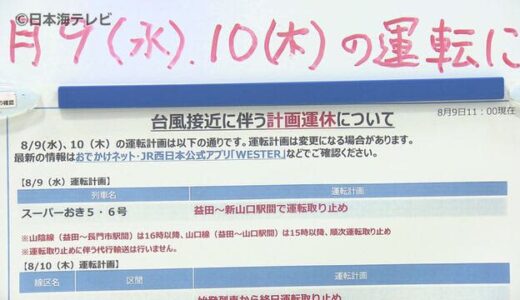 ©日本海テレビ
月9(水).10(木)の運転に
の確認
台風接近に伴う計画運休について
8月9日11:00現在
8/9(水)、10(木)の運転計画は以下の通りです。運転計画は変更になる場合があります。
最新の情報はおでかけネット・JR西日本公式アプリ「WESTER」などでご確認ください。
【8/9(水)運転計画】
列車名 運転計画
スーパーおき5・6号 益田～新山口駅間で運転取り止め
※山陰線(益田～長門市駅間)は16時以降、山口線(益田～山口駅間)は15時以降、順次運転取り止め
※運転取り止めに伴う代行輸送は行いません。
【8/10(木)運転計画】
線区名 区間 運転計画
始発列車から終日運転取り止め